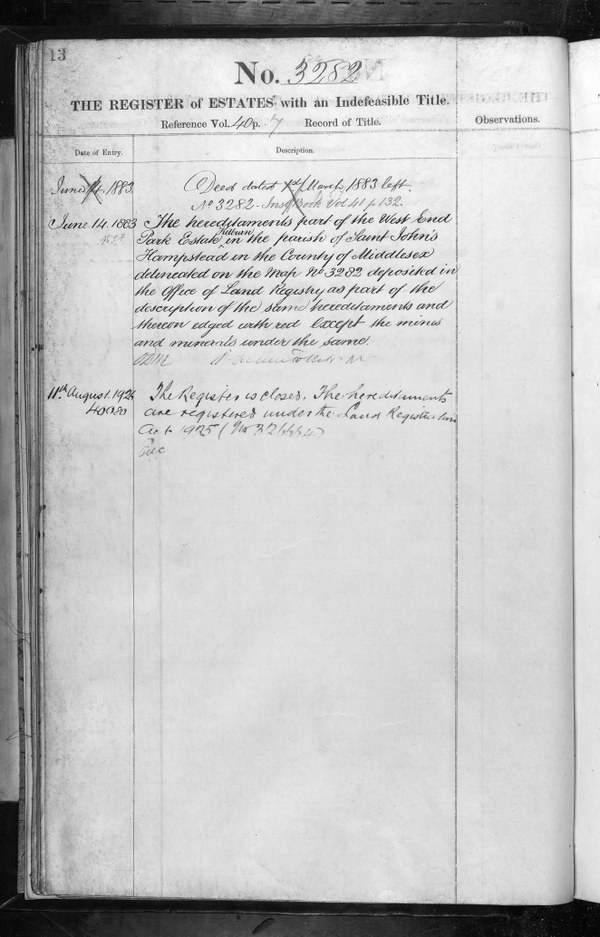 13
No. 3282
THE REGISTER of ESTATES with an Indefeasible Title.
Reference Vol. 40 p. 7 Record of Title.
Observations.
Date of Entry.
Description.
June 14. 1883
Deed dated 1st March, 1883 left.
No 3282 - Inst Book Vol 41 p 132.
June 14. 1883
The hereditaments part of the West End
Park Estate Kilburn in the parish of Saint John's
Hampstead in the County of Middlesex
delineated on the Map No 3282 deposited in
the Office of Land Registry as part of the
description of the same hereditaments and
thereon edged with red except the mines
and minerals under the same.
11th August. 1926
The Register is closed. The hereditaments
are registered under the Land Registration
Act 1925 (No